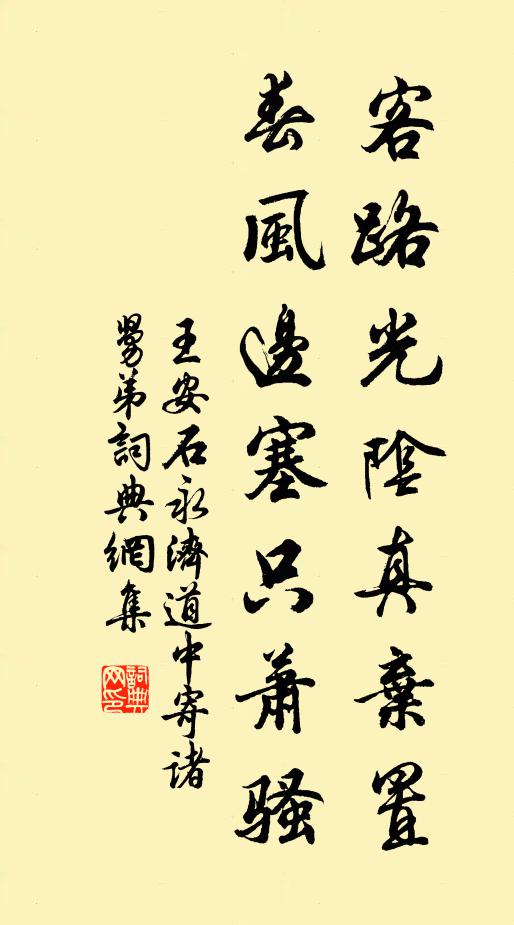 客路光陰真棄置
春風邊塞只蕭騷
王安石永濟道中寄諸
舅弟詞典網集
詞典
网印